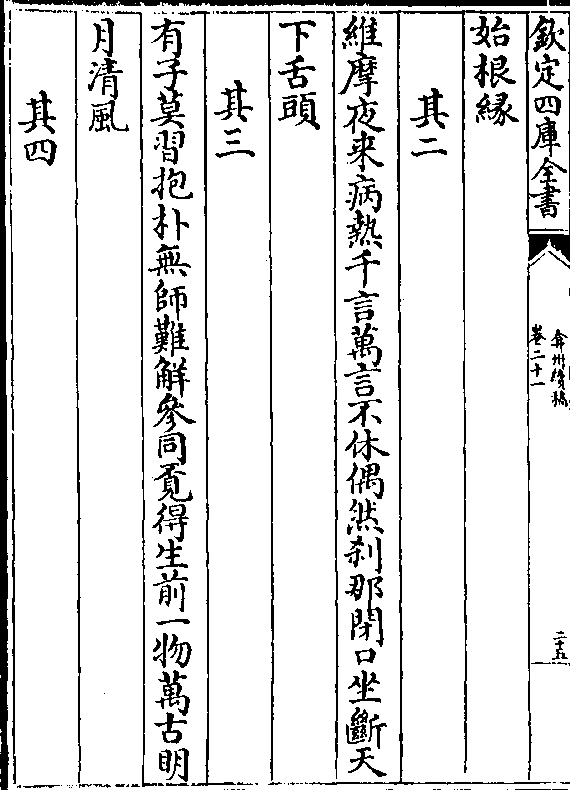 欽定四庫全書
弇州續稿
卷二十一
二十五
始根緣
其二
維摩夜来病熱千言萬言不休偶然刹那閉口坐斷天
下舌頭
其三
有子莫習抱朴無師難解參同覔得生前一物萬古明
月清風
其四